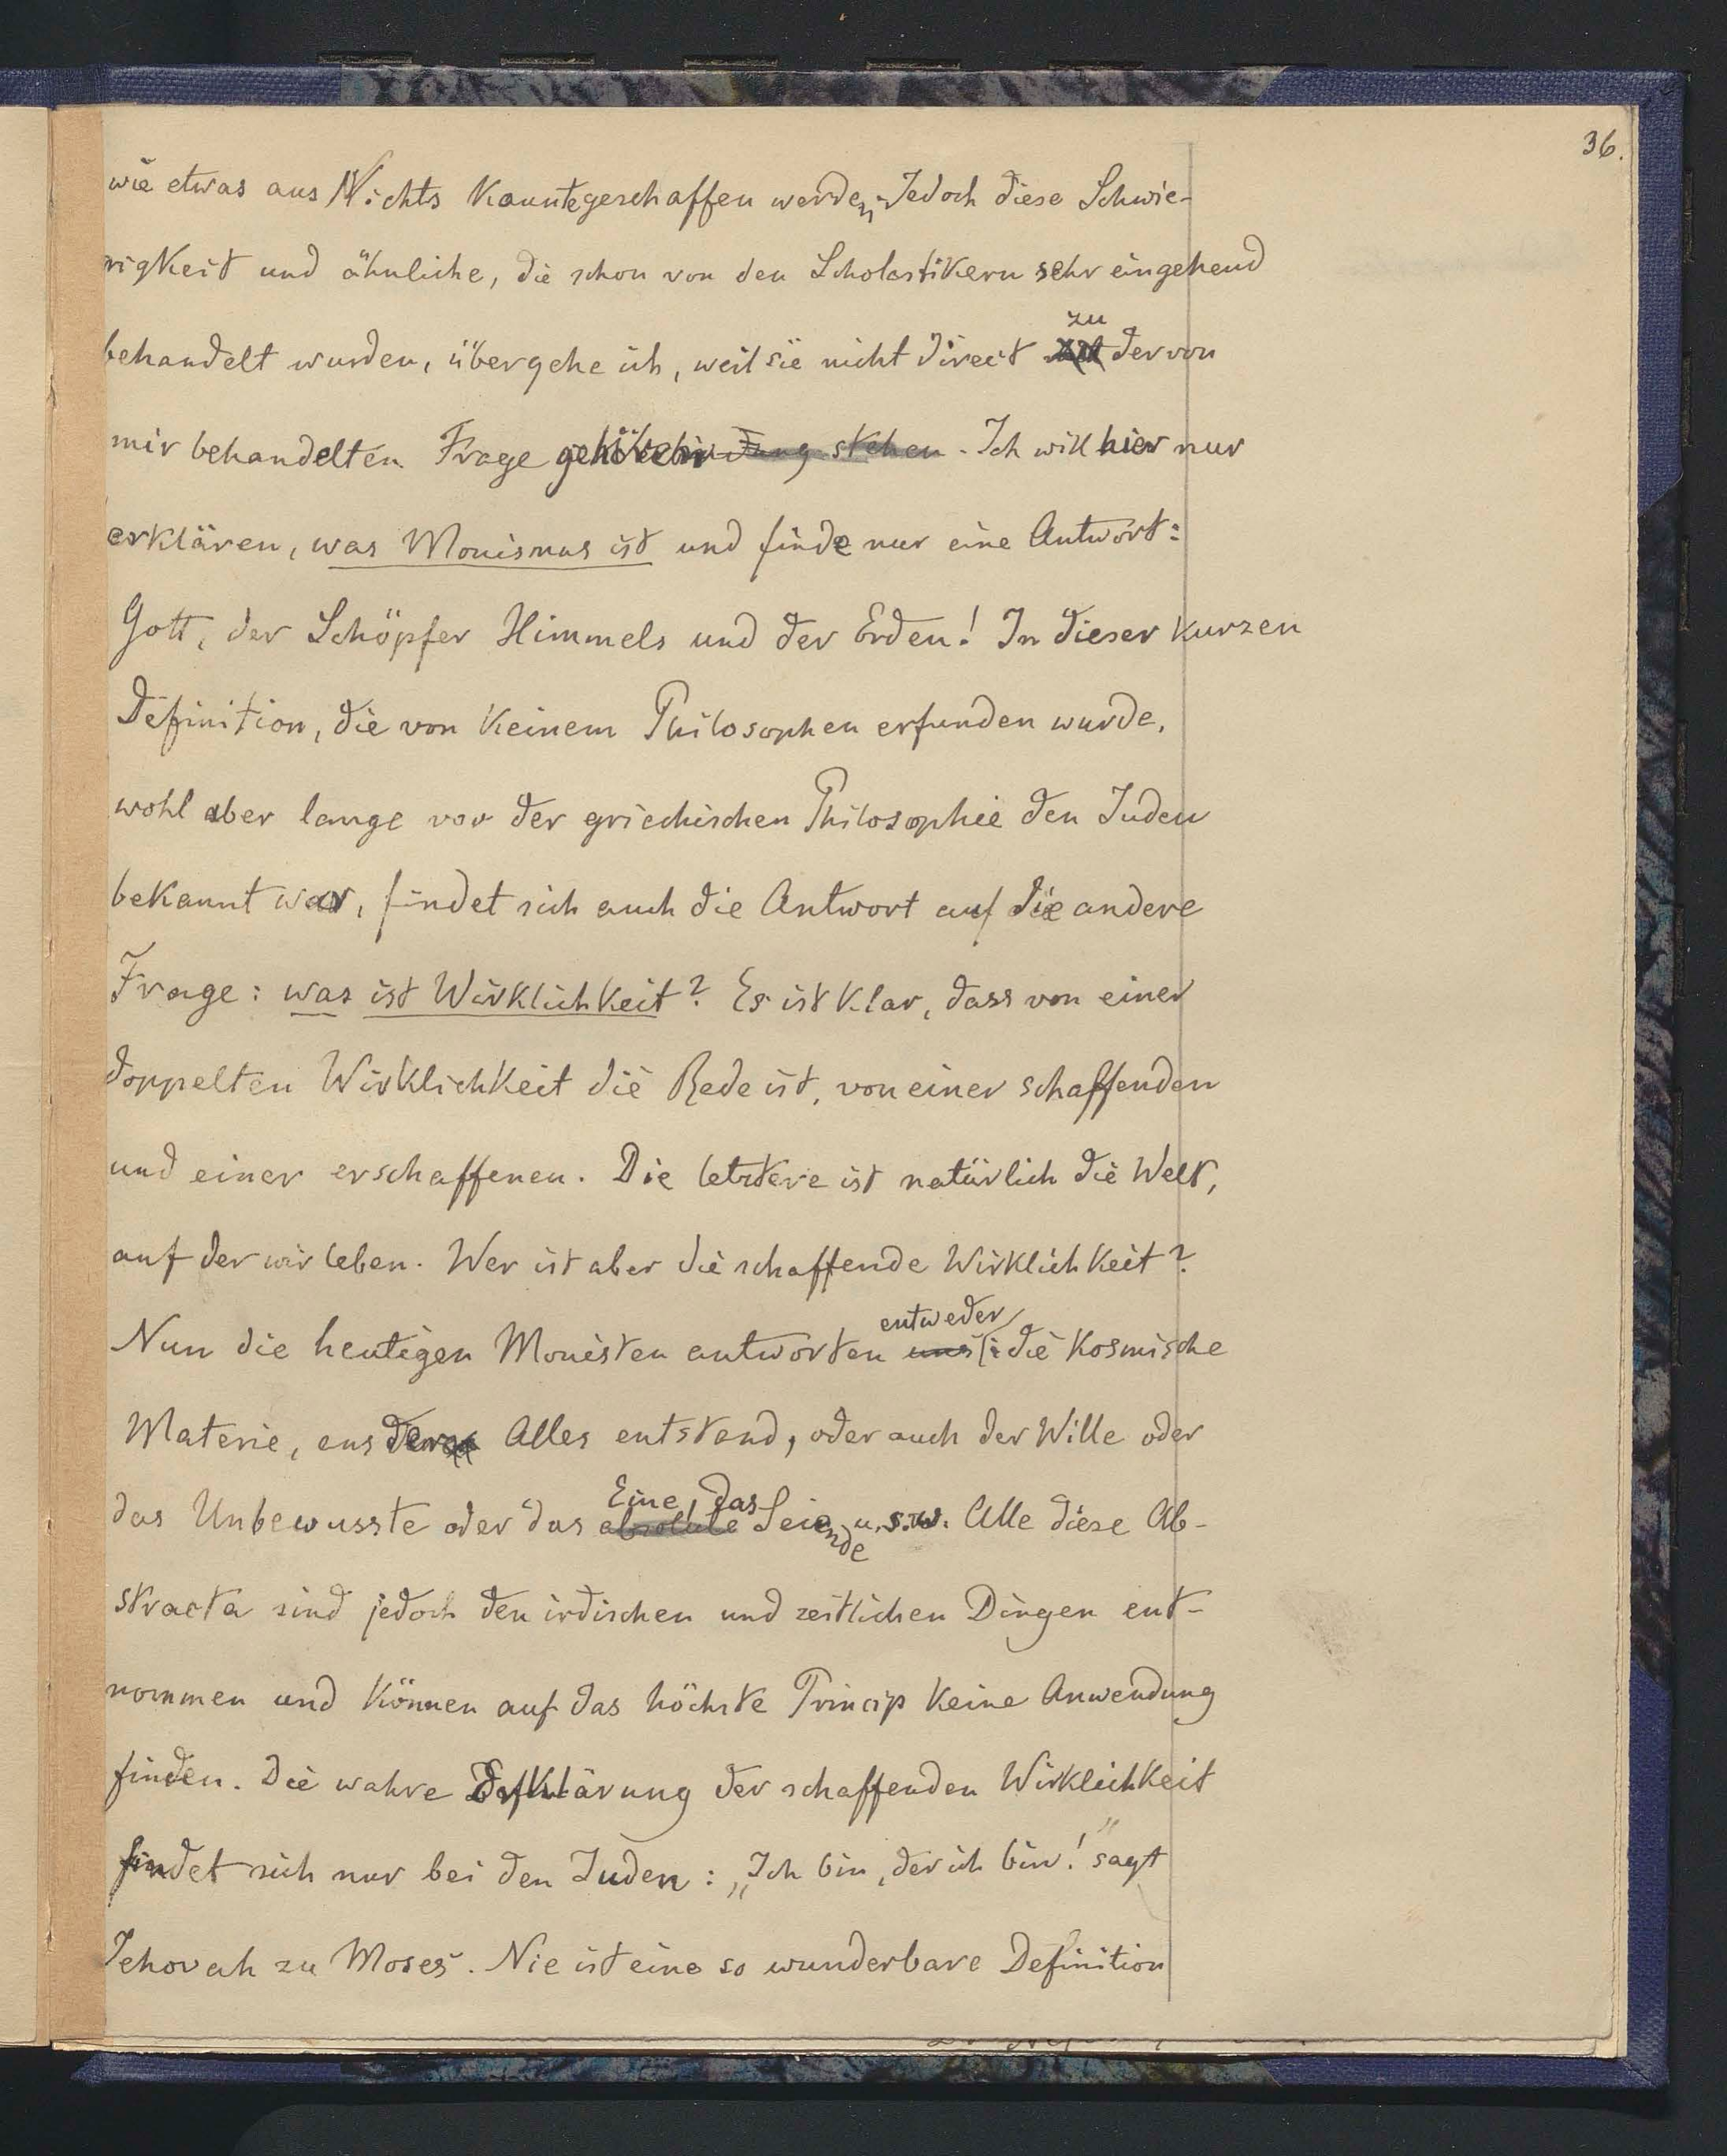 36.
wie etwas aus Nichts konnte geschaffen werden. Jedoch diese Schwie-
rigkeit und ähnliche, die schon von den Scholastikern sehr eingehend
behandelt wurden, übergehe ich, weil sie nicht direct zu der von
mir behandelten Frage gehören. Ich will hier nur
erklären, was Monismus ist und finde nur eine Antwort:
Gott, der Schöpfer Himmels und der Erden! In dieser kurzen
Definition, die von keinem Philosophen erfunden wurde,
wohl aber lange vor der griechischen Philosophie den Juden
bekannt war, findet sich auch die Antwort auf die andere
Frage: was ist Wirklichkeit? Es ist klar, dass von einer
doppelten Wirklichkeit die Rede ist, von einer schaffenden
und einer erschaffenen. Die letztere ist natürlich die Welt,
auf der wir leben. Wer ist aber die schaffende Wirklichkeit?
Nun die heutigen Monisten antworten uns entweder: die kosmische
Materie, aus der Alles entstand, oder auch der Wille oder
das Unbewusste oder das absolute Eine, das Seiende u.s.w. Alle diese Ab-
stracta sind jedoch den irdischen und zeitlichen Dingen ent-
nommen und können auf das höchste Princip keine Anwendung
finden. Die wahre Erklärung der schaffenden Wirklichkeit
findet sich nur bei den Juden: „Ich bin, der ich bin!" sagt
Jehovah zu Moses. Nie ist eine so wunderbare Definition